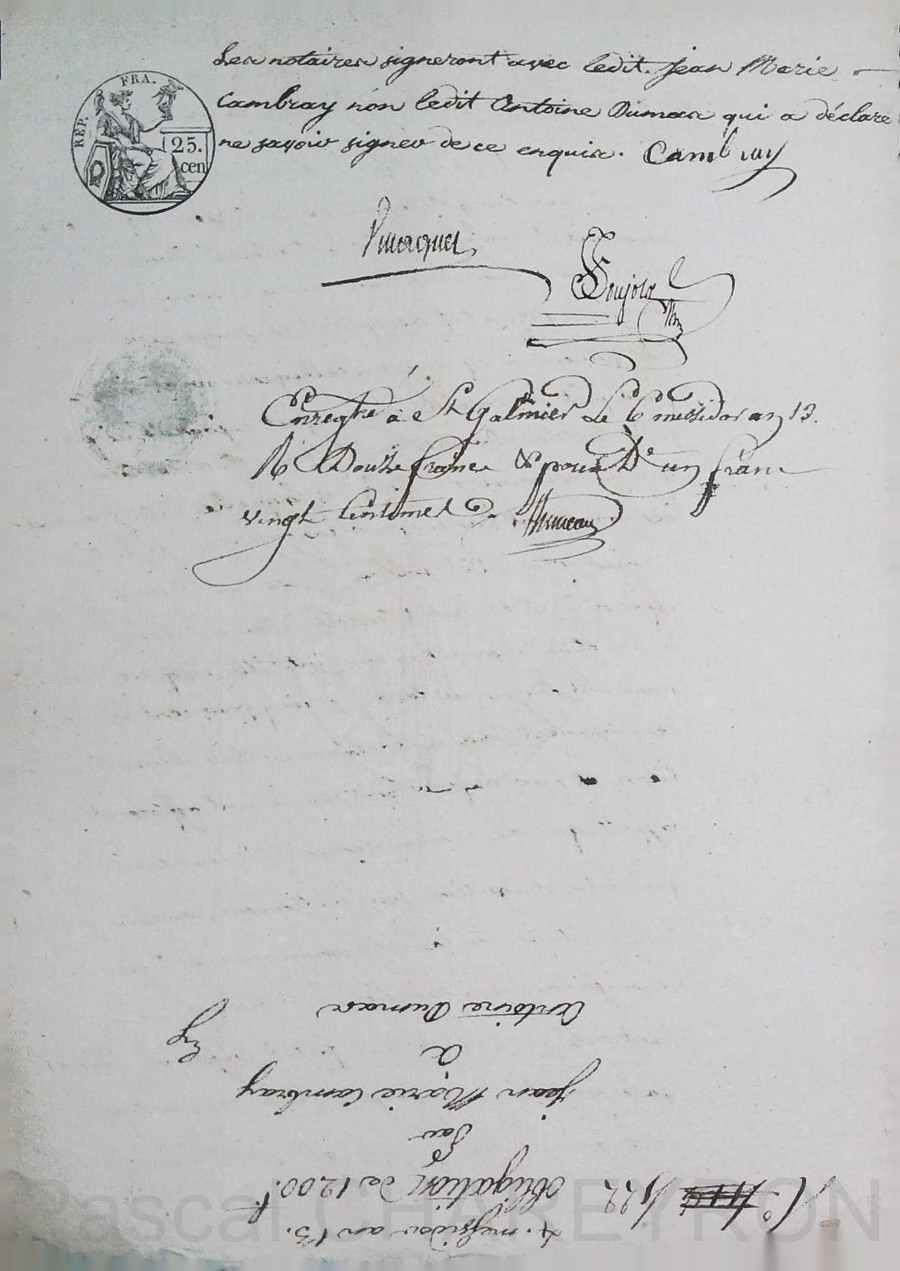 REP. FRA.
25.
cen
Les notaires signeront avec ledit. Jean Marie
Cambray non ledit Antoine Dumas qui a déclaré
ne savoir signer de ce enquis. Cambray
Enregtré à St Galmier le 6 messidor an 13.
R Douze francs & pour De un franc
vingt centimes
4. messidor an 13.
obligation de 1200.f
Par
Jean Marie Cambray
à
Antoine Dumas
Pascal CHABEYRON